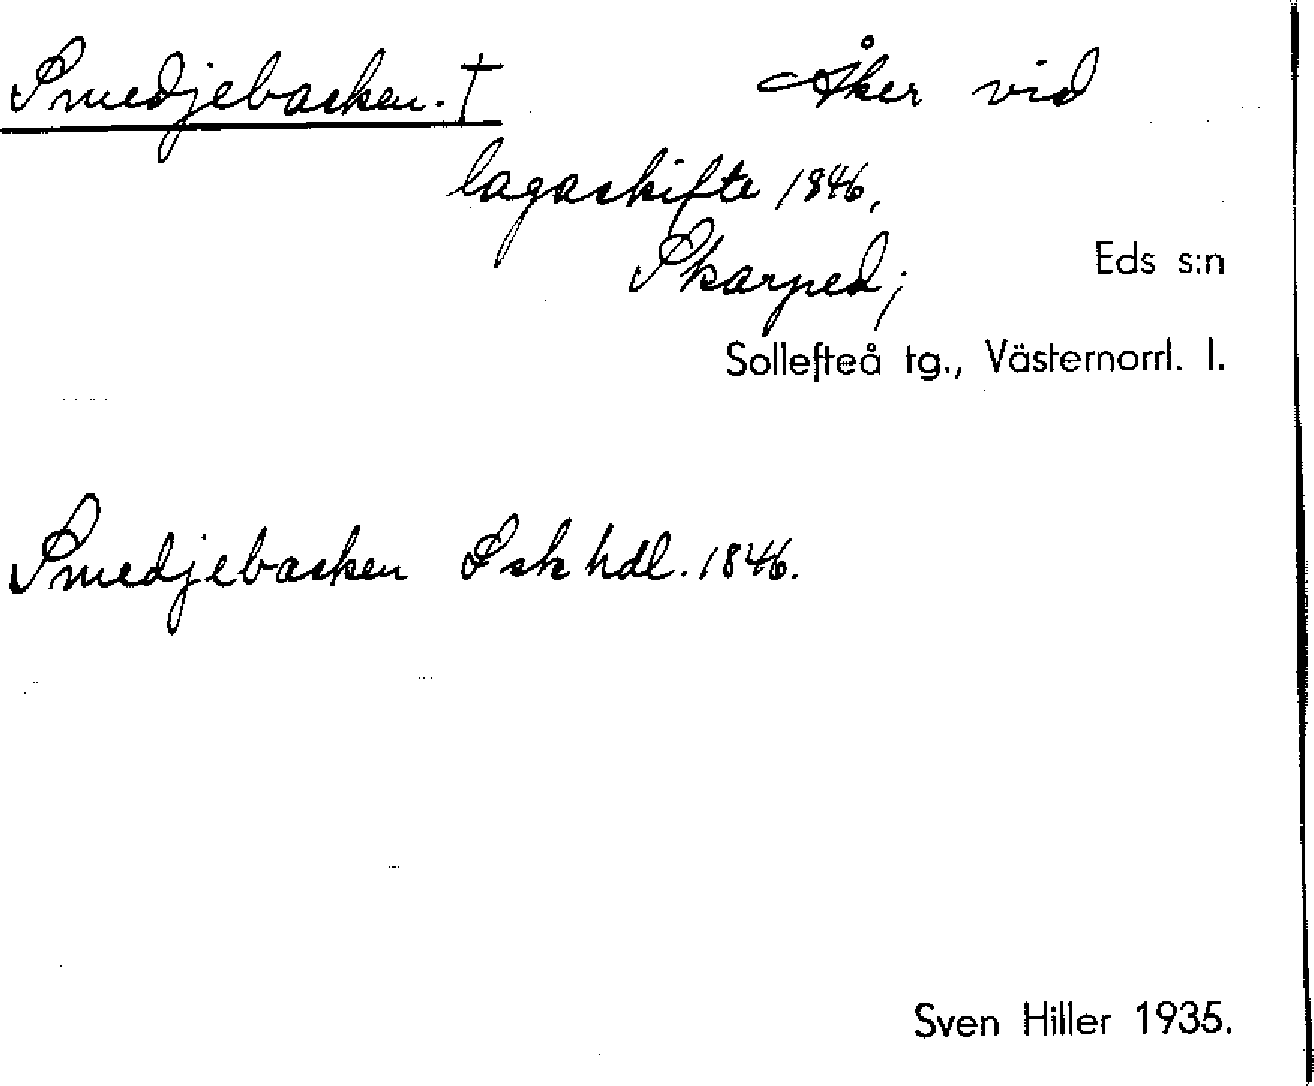 Smedjebacken. † Åker vid
lagaskifte 1846,
Skarped; Eds s:n
Sollefteå tg., Västernorrl. l.
Smedjebacken Lsk hdl. 1846.
Sven Hiller 1935.